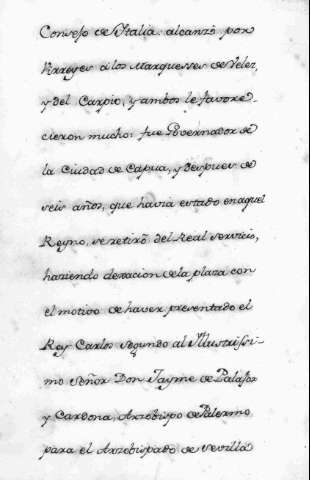 Consejo de Italia alcanzó por
Virreyes à los Marqueses de Velez,
y del Carpio, y ambos le favore-
cieron mucho: fue Governador de
la Ciudad de Capua, y despues de
seis años, que havia estado en aquel
Reyno, se retirò del Real servicio,
haziendo dexacion de la plaza con
el motivo de haver presentado el
Rey Carlos segundo al Illustrissi-
mo Señor Don Jayme de Palafox
y Cardona, Arzobispo de Palermo
para el Arzobispado de Sevilla